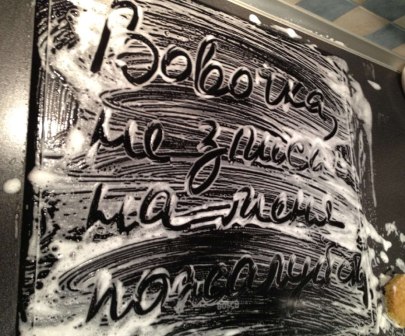 Вовочка,
не злись
на меня
пожалуйста